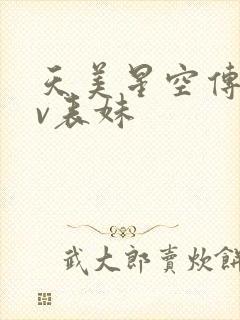 天美星空傳
v表妹
武大郎賣炊餅